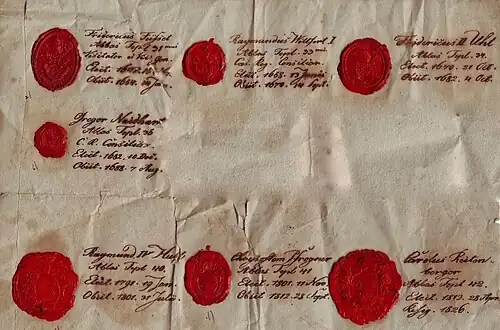 Fridericus
Abbas Tepl. 31mus
Visitator et Vic. Gen.
Elect.
Obiit.
Raymundus Wilfert I
Abbas Tepl. 33mus
Cae. Reg. Consiliar.
Elect. 1658. 17 Junii
Obiit. 1670. 14 Sept.
Fridericus II Uhl
Abbas Tepl. 34.
Elect. 1670. 21 Oct.
Obiit. 1682. 4 Oct.
Gregor Neidhart
Abbas Tepl. 35
C. R. Consiliar.
Elect. 1682. 10 Dec.
Obiit. 1683. 7 Aug.
Raymund IV
Abbas Tepl. 40.
Elect. 179. 19 Jan.
Obiit. 1801. 31 Julii.
Chrysostom Pfrogner
Abbas Tepl. 41
Elect. 1801. 11 Nov.
Obiit. 1812. 28 Sept.
Carolus Reiten-
berger
Abbas Tepl. 42.
Elect. 1813. 28 Apr.
Resig. 1826.